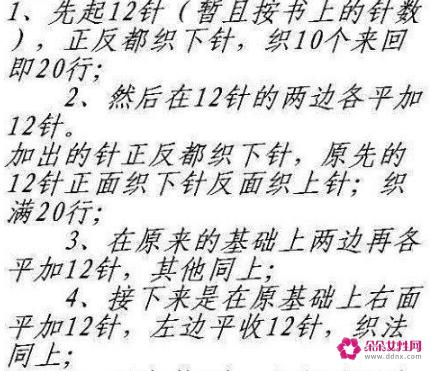 1、先起12针（暂且按书上的针数
），正反都织下针，织10个来回
即20行；
2、然后在12针的两边各平加
12针。
加出的针正反都织下针，原先的
12针正面织下针反面织上针；织
满20行；
3、在原来的基础上两边再各
平加12针，其他同上；
4、接下来是在原基础上右面
平加12针，左边平收12针，织法
同上；
朵朵女性网
www.ddnx.com